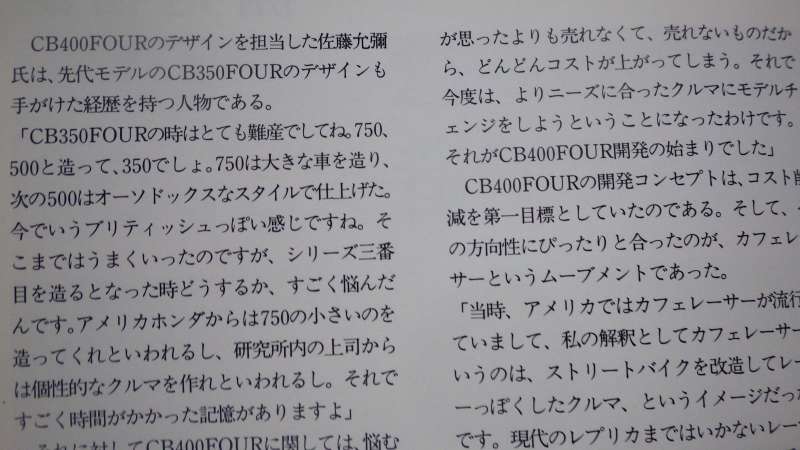 CB400FOURのデザインを担当した佐藤允彌
氏は、先代モデルのCB350FOURのデザインも
手がけた経歴を持つ人物である。
「CB350FOURの時はとても難産でしてね。750、
500と造って、350でしょ。750は大きな車を造り、
次の500はオーソドックスなスタイルで仕上げた。
今でいうブリティッシュっぽい感じですね。そ
こまではうまくいったのですが、シリーズ三番
目を造るとなった時どうするか、すごく悩んだ
んです。アメリカホンダからは750の小さいのを
造ってくれといわれるし、研究所内の上司から
は個性的なクルマを作れといわれるし。それで
すごく時間がかかった記憶がありますよ」
それに対してCB400FOURに関しては、悩む
が思ったよりも売れなくて、売れないものだか
ら、どんどんコストが上がってしまう。それで
今度は、よりニーズに合ったクルマにモデルチ
ェンジをしようということになったわけです。
それがCB400FOUR開発の始まりでした」
CB400FOURの開発コンセプトは、コスト削
減を第一目標としていたのである。そして、
の方向性にぴったりと合ったのが、カフェレー
サーというムーブメントであった。
「当時、アメリカではカフェレーサーが流行
ていまして、私の解釈としてカフェレーサー
いうのは、ストリートバイクを改造してレー
ーっぽくしたクルマ、というイメージだった
です。現代のレプリカまではいかないレー